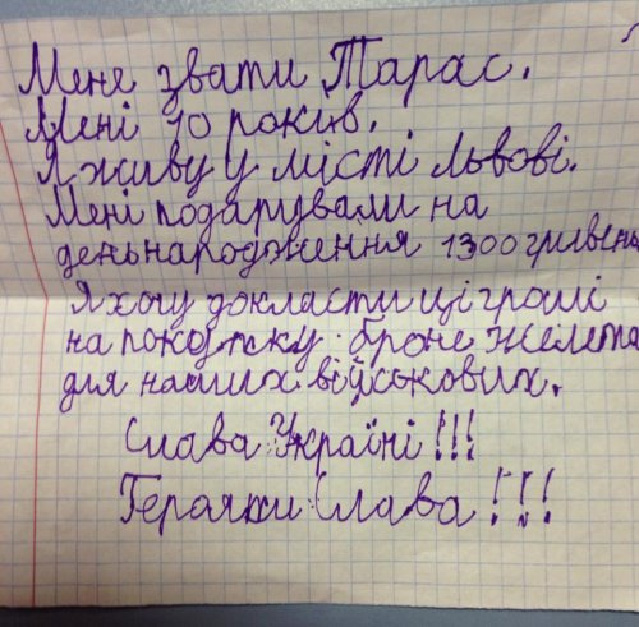 Мене звати Тарас.
Мені 10 років.
Я живу у місті Львові.
Мені подарували на
деньнародження 1300 гривень
Я хочу докласти ці гроші
на покупку броне жилета
для наших військових.
Слава Україні!!!
Героями Слава!!!